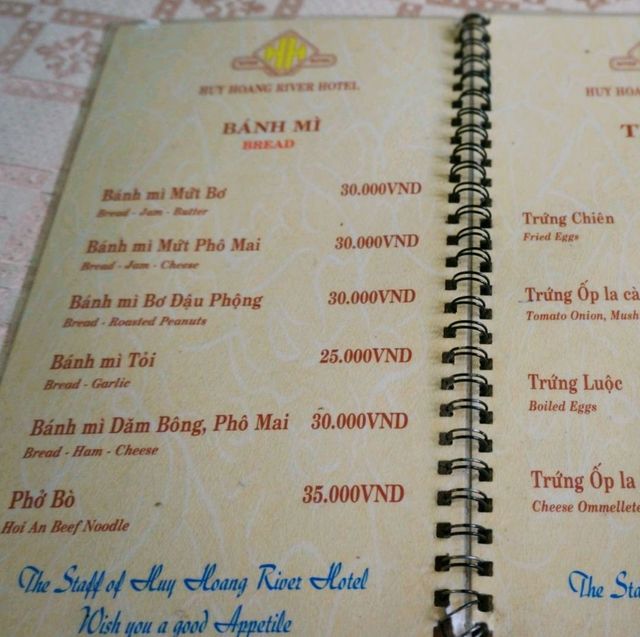 HUY HOANG RIVER HOTEL
BÁNH MÌ
BREAD
Bánh mì Mứt Bơ 30.000VND
Bread - Jam - Butter
Bánh mì Mứt Phô Mai 30.000VND
Bread - Jam - Cheese
Bánh mì Bơ Đậu Phộng 30.000VND
Bread - Roasted Peanuts
Bánh mì Tỏi 25.000VND
Bread - Garlic
Bánh mì Dăm Bông, Phô Mai 30.000VND
Bread - Ham - Cheese
Phở Bò 35.000VND
Hoi An Beef Noodle
The Staff of Huy Hoang River Hotel
Wish you a good Appetile
HUY HOA
T
Trứng Chiên
Fried Eggs
Trứng Ốp la cà
Tomato Onion, Mush
Trứng Luộc
Boiled Eggs
Trứng Ốp la
Cheese Ommellete
The Sta